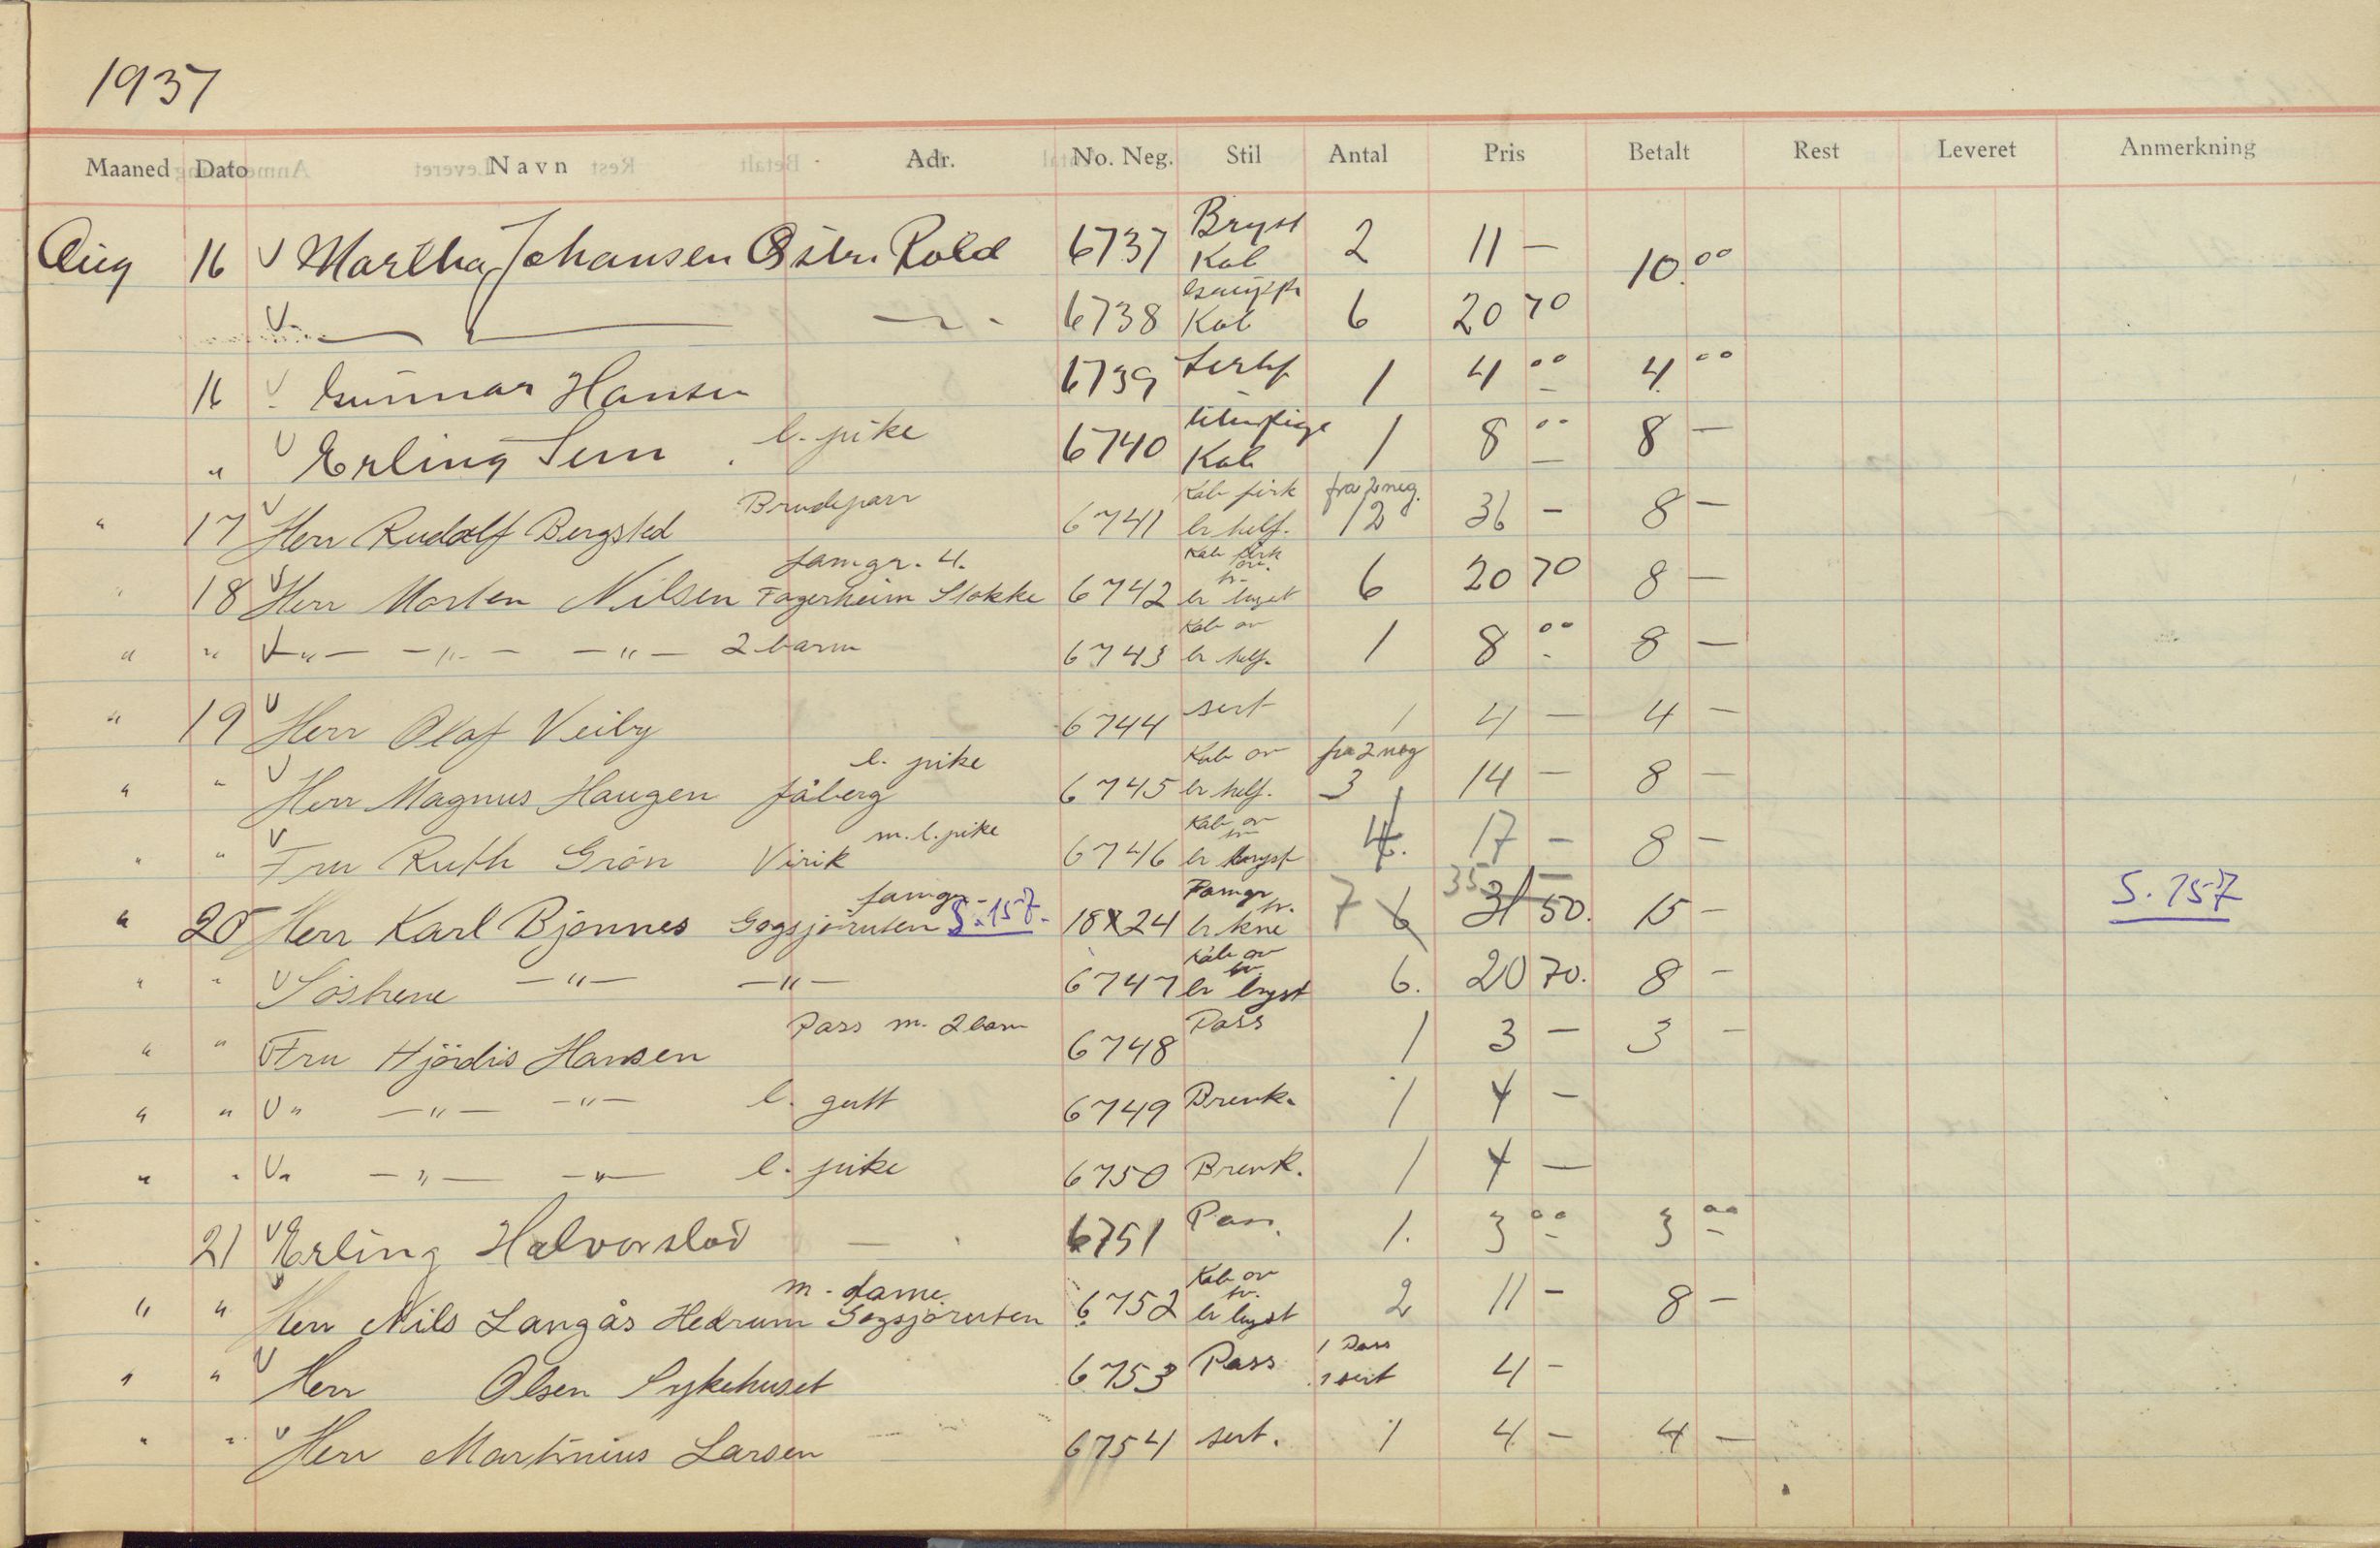 1937
Maaned Dato Navn Adr. No. Neg. Stil Antal Pris Betalt Rest Leveret Anmerkning
Aug 16 V Martha Johansen Østre Rold 6737 Bryst Kab 2 11 – 10.00
V 6738 Kab 6 20 70
16 V Gunnar Hansen 6739 Sertf 1 4 00 4.00
" V Erling Sem l. pike 6740 Kab 1 8 00 8 –
Brudepar Kab fra 2 neg.
" 17 V Herr Rudolf Bergsted 6741 br helf. 12 36 – 8 –
famgr. 4. Kab
18 V Herr Morten Nilsen Fagerheim Stokke 6742 br bryst 6 20 70 8 –
Kab or
" " V –"– –"– –"– 2 barn 6743 br helf. 1 8 00 8 –
" 19 V Herr Olaf Veiby 6744 sert 1 4 – 4 –
l. pike Kab or fra 2 neg
" " V Herr Magnus Haugen Jåberg 6745 br helf. 3 14 – 8 –
m. l. pike Kab or
" " V Fru Ruth Grön Virik 6746 br bryst 4. 17 – 8 –
famgr. Famgr 35
" 20 Herr Karl Bjønnes Gogsjøruten S. 157. 18X24 br kne 7 6 31 50. 15 – S. 157
Kab or
" " V Søstrene –"– –"– 6747 br bryst 6. 20 70. 8 –
Pass m. 2 barn Pass
" " V Fru Hjördis Hansen 6748 1 3 – 3 –
" " V " –"– –"– l. gutt 6749 Brevk. 1 4 –
" " V " –"– –"– l. pike 6750 Brevk. 1 4 –
21 V Erling Halvorslöd – 6751 Pass. 1. 3 00 3 00
m. dame Kab or
" " Herr Nils Langås Hedrum Gogsjøruten 6752 br bryst 2 11 – 8 –
1 Pass
" " V Herr Olsen Sykehuset 6753 Pass 1 sert 4 –
" " V Herr Martinius Larsen 6754 sert. 1 4 – 4 –